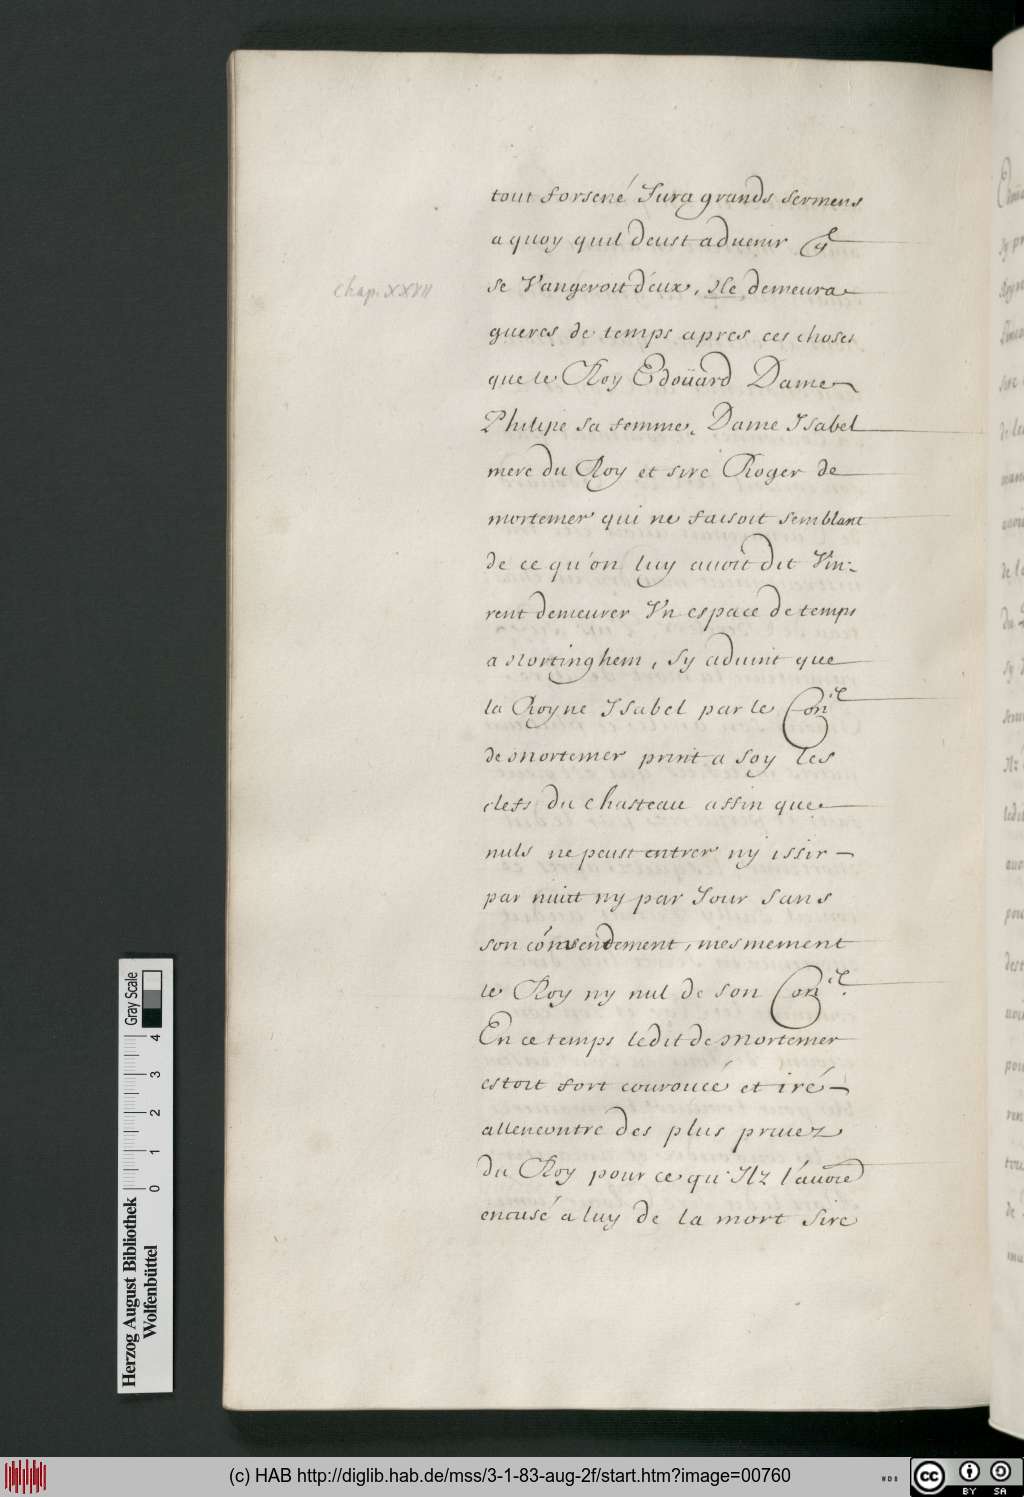 tout forsené Jura grands sermens
a quoy quil deust aduenir
se Vangeroit d'eux, Ne demeura
gueres de temps apres ces choses
Chap. XXVII
que le Roy Edoüard Dame
Philipe sa femme, Dame Isabel
mere du Roy et sire Roger de
mortemer qui ne faisoit semblant
de ce qu'on luy auoit dit Vin-
rent demeurer Vn espace de temps
a Nortinghem, sy aduint que
la Royne Isabel par le Con.il
de Mortemer print a soy les
clefs du chasteau affin que
nuls ne peust entrer ny issir
par nuitt ny par Jour sans
son consendement, mesmement
le Roy ny nul de son Con.il
En ce temps ledit de Mortemer
estoit fort couroucé et iré
allencontre des plus priuez
du Roy pour ce qu'Ilz l'auoie
encusé a luy de la mort sire
Herzog August Bibliothek
Wolfenbüttel
0 1 2 3 4
Gray Scale
(c) HAB http://diglib.hab.de/mss/3-1-83-aug-2f/start.htm?image=00760
WDB
cc
BY SA